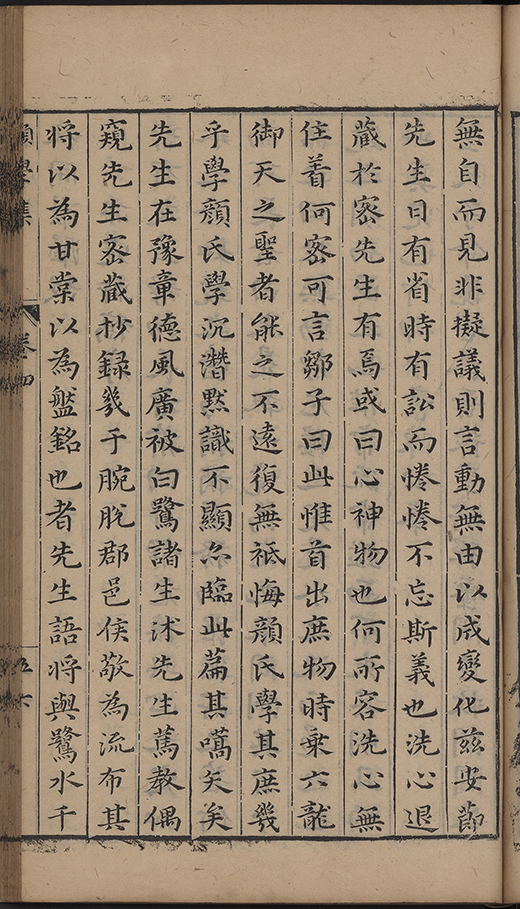 無自而見非擬議則言動無由以成變化茲安節
先生日有省時有訟而惓惓不忘斯義也洗心退
藏於密先生有焉或曰心神物也何所容洗心無
住着何密可言鄒子曰此惟首出庶物時乘六龍
御天之聖者能之不遠復無祗悔顏氏學其庶幾
乎學顏氏學沉潛默識不顯亦臨此篇其嚆矢矣
先生在豫章德風廣被白鷺諸生沭先生篤教偶
窺先生密藏抄錄幾于腕脫郡邑侯敬為流布其
將以為甘棠以為盤銘也者先生語將與鷺水千
學集
卷四
五六